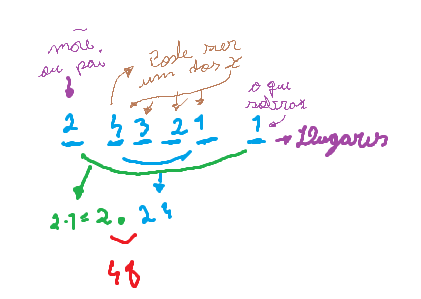 mãe,
ou pai
Pode ser
um dos 2
o que
sobrou
2 4 3 2 1 1
→ Lugares
2·1= 2 . 24
48